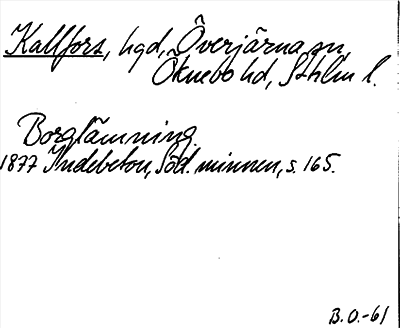 Kallfors, hgd, Överjärna sn,
Öknebo hd, Sthlm l.
Borglämning.
1877 Indebetou, Söd. minnen, s. 165.
B.O.-61